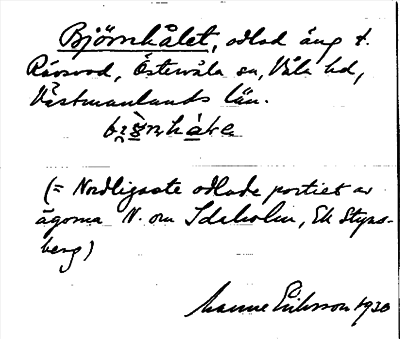 Björnhålet, odlad äng t.
Rävsvod, Östervåla sn, Våla hd,
Västmanlands län.
(= Nordligaste odlade partiet av
ägorna N. om Idaholm, Ek Styvs-
berg)
Manne Eriksson 1930